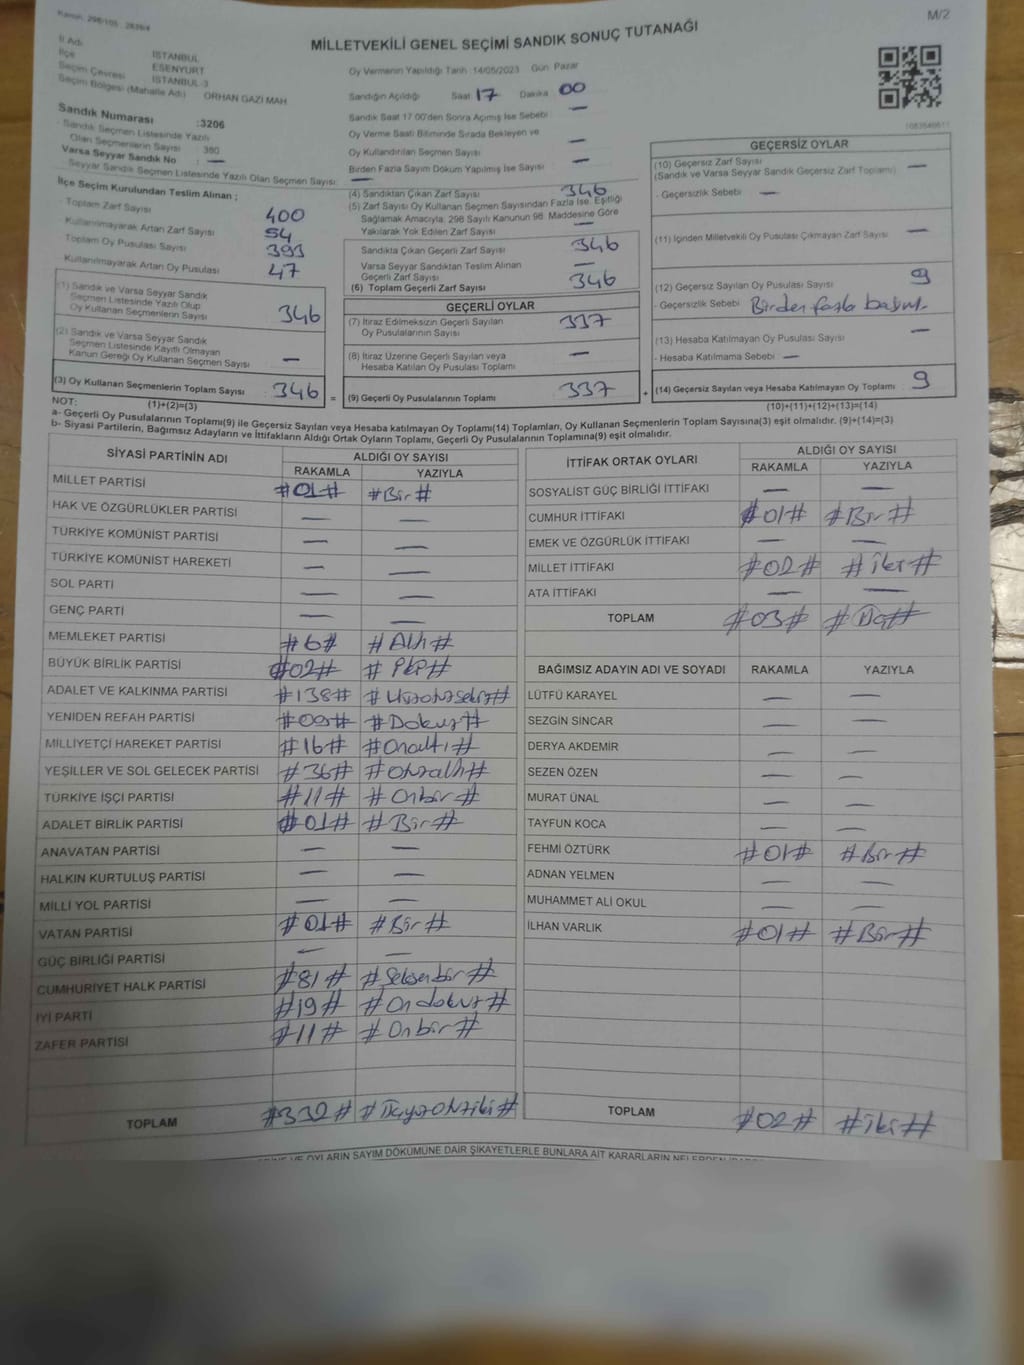 Kanun: 298/105 2839/4
M/2
MİLLETVEKİLİ GENEL SEÇİMİ SANDIK SONUÇ TUTANAĞI
İl Adı İSTANBUL
İlçe ESENYURT
Seçim Çevresi İSTANBUL-3
Seçim Bölgesi (Mahalle Adı) ORHAN GAZİ MAH
Sandık Numarası :3206
- Sandık Seçmen Listesinde Yazılı
Olan Seçmenlerin Sayısı : 380
Varsa Seyyar Sandık No : —
- Seyyar Sandık Seçmen Listesinde Yazılı Olan Seçmen Sayısı: —
İlçe Seçim Kurulundan Teslim Alınan ;
- Toplam Zarf Sayısı 400
- Kullanılmayarak Artan Zarf Sayısı 54
Toplam Oy Pusulası Sayısı 393
- Kullanılmayarak Artan Oy Pusulası 47
(1) Sandık ve Varsa Seyyar Sandık
Seçmen Listesinde Yazılı Olup
Oy Kullanan Seçmenlerin Sayısı 346
(2) Sandık ve Varsa Seyyar Sandık
Seçmen Listesinde Kayıtlı Olmayan
Kanun Gereği Oy Kullanan Seçmen Sayısı —
(3) Oy Kullanan Seçmenlerin Toplam Sayısı 346 =
Oy Vermenin Yapıldığı Tarih :14/05/2023 Gün: Pazar
Sandığın Açıldığı Saat: 17 Dakika 00
Sandık Saat 17.00'den Sonra Açımış İse Sebebi : —
Oy Verme Saati Bitiminde Sırada Bekleyen ve
Oy Kullandırılan Seçmen Sayısı —
Birden Fazla Sayım Döküm Yapılmış İse Sayısı —
(4) Sandıktan Çıkan Zarf Sayısı 346
(5) Zarf Sayısı Oy Kullanan Seçmen Sayısından Fazla İse, Eşitliği
Sağlamak Amacıyla, 298 Sayılı Kanunun 98. Maddesine Göre
Yakılarak Yok Edilen Zarf Sayısı —
Sandıkta Çıkan Geçerli Zarf Sayısı 346
Varsa Seyyar Sandıktan Teslim Alınan
Geçerli Zarf Sayısı —
(6) Toplam Geçerli Zarf Sayısı 346
GEÇERLİ OYLAR
(7) İtiraz Edilmeksizin Geçerli Sayılan
Oy Pusulalarının Sayısı 337
(8) İtiraz Üzerine Geçerli Sayılan veya
Hesaba Katılan Oy Pusulası Toplamı —
(9) Geçerli Oy Pusulalarının Toplamı 337 +
1083546611
GEÇERSİZ OYLAR
(10) Geçersiz Zarf Sayısı —
(Sandık ve Varsa Seyyar Sandık Geçersiz Zarf Toplamı)
- Geçersizlik Sebebi —
(11) İçinden Milletvekili Oy Pusulası Çıkmayan Zarf Sayısı —
(12) Geçersiz Sayılan Oy Pusulası Sayısı 9
- Geçersizlik Sebebi Birden fazla
(13) Hesaba Katılmayan Oy Pusulası Sayısı —
- Hesaba Katılmama Sebebi : —
(14) Geçersiz Sayılan veya Hesaba Katılmayan Oy Toplamı 9
NOT: (1)+(2)=(3) (10)+(11)+(12)+(13)=(14)
a- Geçerli Oy Pusulalarının Toplamı(9) ile Geçersiz Sayılan veya Hesaba katılmayan Oy Toplamı(14) Toplamları, Oy Kullanan Seçmenlerin Toplam Sayısına(3) eşit olmalıdır. (9)+(14)=(3)
b- Siyasi Partilerin, Bağımsız Adayların ve İttifakların Aldığı Ortak Oyların Toplamı, Geçerli Oy Pusulalarının Toplamına(9) eşit olmalıdır.
SİYASİ PARTİNİN ADI ALDIĞI OY SAYISI
RAKAMLA YAZIYLA
MİLLET PARTİSİ #01# #Bir#
HAK VE ÖZGÜRLÜKLER PARTİSİ — —
TÜRKİYE KOMÜNİST PARTİSİ — —
TÜRKİYE KOMÜNİST HAREKETİ — —
SOL PARTİ — —
GENÇ PARTİ — —
MEMLEKET PARTİSİ #6# #Altı#
BÜYÜK BİRLİK PARTİSİ #02# #İki#
ADALET VE KALKINMA PARTİSİ #138# #Yüzotuzsekiz#
YENİDEN REFAH PARTİSİ #09# #Dokuz#
MİLLİYETÇİ HAREKET PARTİSİ #16# #Onaltı#
YEŞİLLER VE SOL GELECEK PARTİSİ #36# #Otuzaltı#
TÜRKİYE İŞÇİ PARTİSİ #11# #Onbir#
ADALET BİRLİK PARTİSİ #01# #Bir#
ANAVATAN PARTİSİ — —
HALKIN KURTULUŞ PARTİSİ — —
MİLLİ YOL PARTİSİ — —
VATAN PARTİSİ #01# #Bir#
GÜÇ BİRLİĞİ PARTİSİ — —
CUMHURİYET HALK PARTİSİ #81# #Seksenbir#
İYİ PARTİ #19# #Ondokuz#
ZAFER PARTİSİ #11# #Onbir#
TOPLAM #332# #Üçyüzotuziki#
İTTİFAK ORTAK OYLARI ALDIĞI OY SAYISI
RAKAMLA YAZIYLA
SOSYALİST GÜÇ BİRLİĞİ İTTİFAKI — —
CUMHUR İTTİFAKI #01# #Bir#
EMEK VE ÖZGÜRLÜK İTTİFAKI — —
MİLLET İTTİFAKI #02# #İki#
ATA İTTİFAKI — —
TOPLAM #03# #Üç#
BAĞIMSIZ ADAYIN ADI VE SOYADI RAKAMLA YAZIYLA
LÜTFÜ KARAYEL — —
SEZGİN SİNCAR — —
DERYA AKDEMİR — —
SEZEN ÖZEN — —
MURAT ÜNAL — —
TAYFUN KOCA — —
FEHMİ ÖZTÜRK #01# #Bir#
ADNAN YELMEN — —
MUHAMMET ALİ OKUL — —
İLHAN VARLIK #01# #Bir#
TOPLAM #02# #İki#
VE OYLARIN SAYIM DÖKÜMÜNE DAİR ŞİKAYETLERLE BUNLARA AİT KARARLARIN